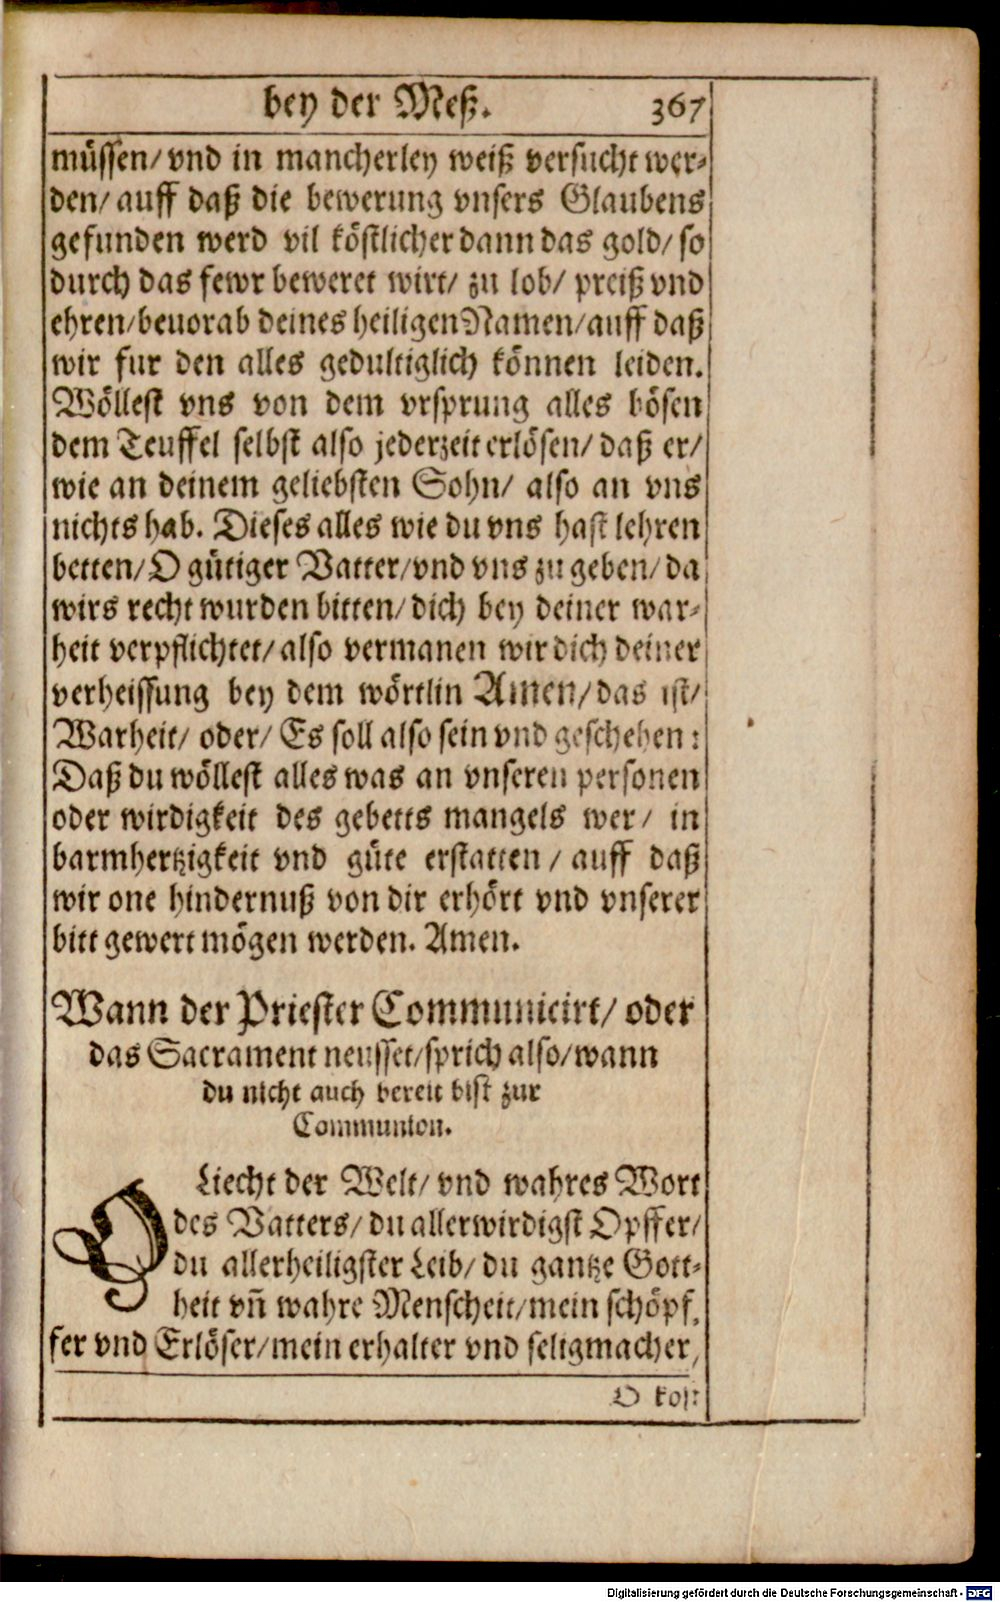 bey der Meß. 367
müssen/ vnd in mancherley weiß versucht wer-
den/ auff daß die bewerung vnsers Glaubens
gefunden werd vil köstlicher dann das gold/ so
durch das fewr beweret wirt/ zu lob/ preiß vnd
ehren/ beuorab deines heiligen Namen/ auff daß
wir fur den alles gedultiglich können leiden.
Wöllest vns von dem vrsprung alles bösen
dem Teuffel selbst also jederzeit erlösen/ daß er/
wie an deinem geliebsten Sohn/ also an vns
nichts hab. Dieses alles wie du vns hast lehren
betten/ O gütiger Vatter/ vnd vns zu geben/ da
wirs recht wurden bitten/ dich bey deiner war-
heit verpflichtet/ also vermanen wir dich deiner
verheissung bey dem wörtlin Amen/ das ist/
Warheit/ oder/ Es soll also sein vnd geschehen:
Daß du wöllest alles was an vnseren personen
oder wirdigkeit des gebetts mangels wer/ in
barmhertzigkeit vnd güte erstatten/ auff daß
wir one hindernuß von dir erhört vnd vnserer
bitt gewert mögen werden. Amen.
Wann der Priester Communicirt/ oder
das Sacrament neusset/ sprich also/ wann
du nicht auch bereit bist zur
Communion.
O Liecht der Welt/ vnd wahres Wort
des Vatters/ du allerwirdigst Opffer/
du allerheiligster Leib/ du gantze Gott-
heit vñ wahre Menscheit/ mein schöpf-
fer vnd Erlöser/ mein erhalter vnd seligmacher/
O kost
Digitalisierung gefördert durch die Deutsche Forschungsgemeinschaft - DFG